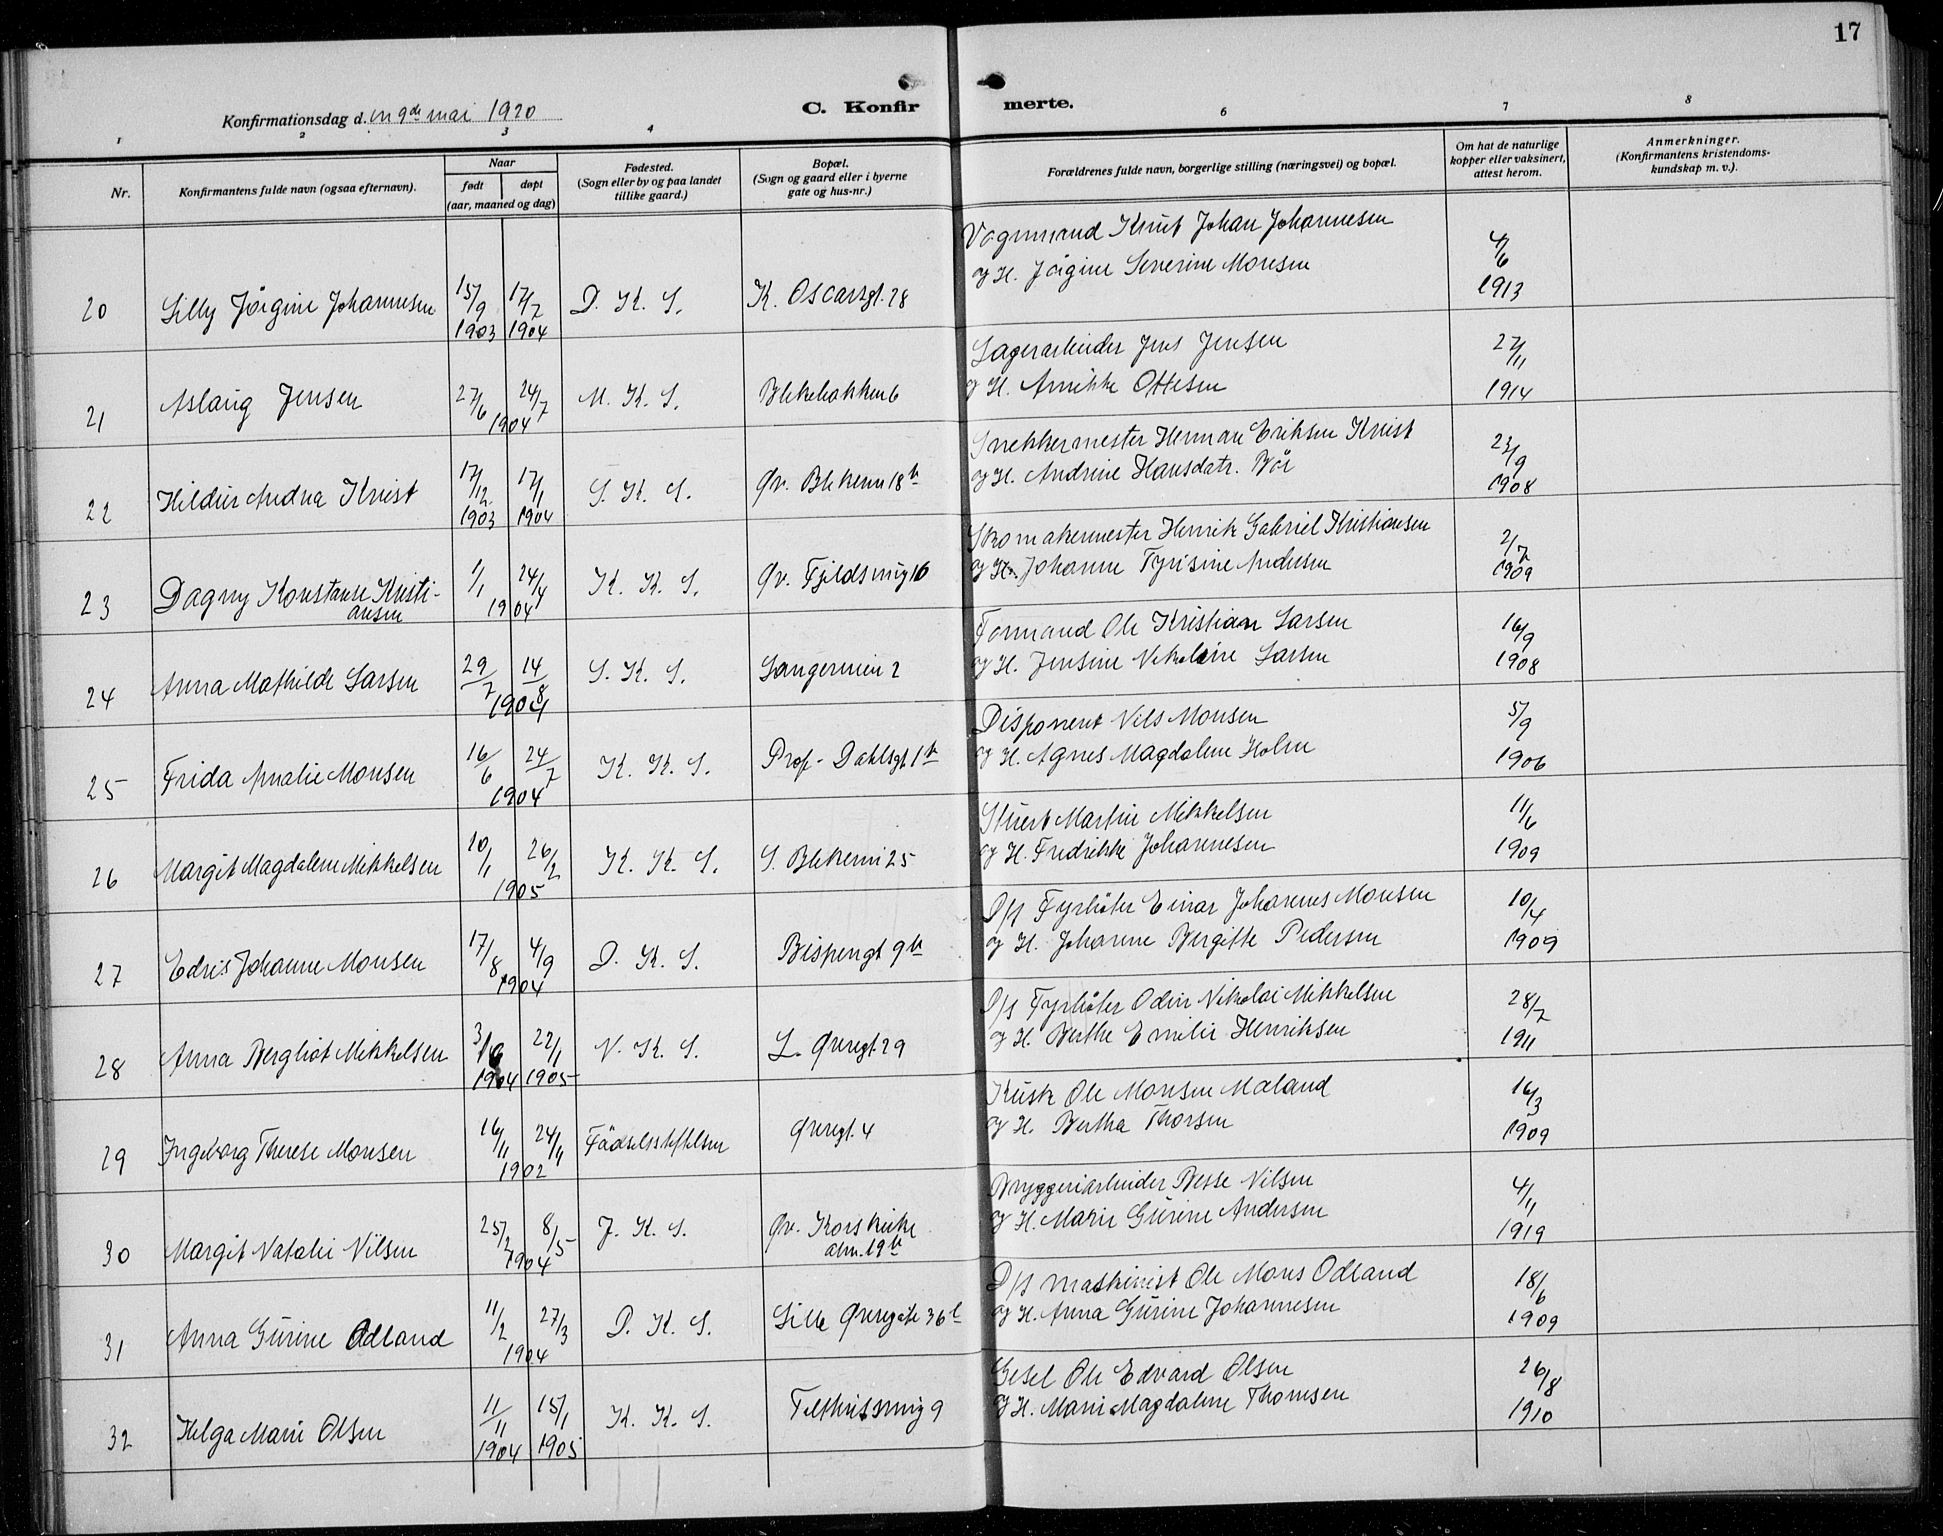 17
Konfirmationsdag den 9de mai 1920
C. Konfirmerte.
1 2 3 4 6 7 8
Nr.
Konfirmantens fulde navn (ogsaa efternavn).
Naar
født døpt
(aar, maaned og dag)
Fødested.
(Sogn eller by og paa landet
tillike gaard.)
Bopæl.
(Sogn og gaard eller i byerne
gate og hus-nr.)
Forældrenes fulde navn, borgerlige stilling (næringsvei) og bopæl.
Om hat de naturlige
kopper eller vaksinert,
attest herom.
Anmerkninger.
(Konfirmantens kristendoms-
kundskap m. v.).
Vognmand Knut Johan Johannesen
20 Lilly Jörgine Johannesen 15/9 1903 17/7 1904 D. K. S. K. Oscarsgt. 28 og H. Jörgine Severine Monsen 4/6 1913
Lagerarbeider Jens Jensen
21 Aslaug Jensen 27/6 24/7 1904 M. K. S. Blekebakken 6 og H. Annikke Ottesen 27/11 1914
Snekkermester Herman Eriksen Kneist
22 Hildur Andrea Kneist 17/12 1903 17/1 1904 S. K. S. Øv. Blekevei 18b og H. Andrine Hansdatr. Bör 23/9 1908
Skomakermester Henrik Gabriel Kristiansen
23 Dagny Konstanse Kristi-
ansen 1/1 24/4 1904 K. K. S. Øv. Fjeldsmug 16 og H. Johanne Tyrisine Andersen 2/7 1909
Formand Ole Kristian Larsen
24 Anna Mathilde Larsen 29/7 14/8 1904 S. K. S. Sangerveien 2 og H. Jensine Nikoline Larsen 16/9 1908
Disponent Nils Monsen
25 Frida Amalie Monsen 16/6 24/7 1904 K. K. S. Prof. Dahlsgt 1b og H. Agnes Magdalene Holm 5/9 1906
Stuert Martin Mikkelsen
26 Margit Magdalene Mikkelsen 10/1 26/2 1905 K. K. S. S. Blekevei 25 og H. Fredrikke Johannesen 11/6 1909
D/S Fyrböter Einar Johannes Monsen
27 Edvis Johanne Monsen 17/8 4/9 1904 D. K. S. Bispengt 9b og H. Johanne Bergitte Pedersen 10/4 1909
D/S Fyrböter Odin Nikolai Mikkelsen
28 Anna Bergliot Mikkelsen 1904 22/1 1905 N. K. S. L. Øvregt. 29 og H. Berthe Emilie Henriksen 28/7 1911
Kusk Ole Monsen Mæland
29 Ingeborg Therese Monsen 16/11 24/11 1902 Födselsstiftelsen Øvregt. 4 og H. Bertha Thorsen 16/3 1909
Bryggeriarbeider Besse Nilsen
30 Margit Natalie Nilsen 25/2 8/5 1904 J. K. S. Øv. Korskirke
alm. 19b og H. Marie Gurine Andersen 4/11 1919
D/S maskinist Ole Mons Odland
31 Anna Gurine Odland 11/2 27/3 1904 D. K. S. Lille Øvregate 36 og H. Anna Gurine Johannesen 18/6 1909
Gesel Ole Edvard Olsen
32 Helga Marie Olsen 11/11 1904 15/1 1905 K. K. S. Telthussmug 9 og H. Marie Magdalene Thomsen 26/8 1910